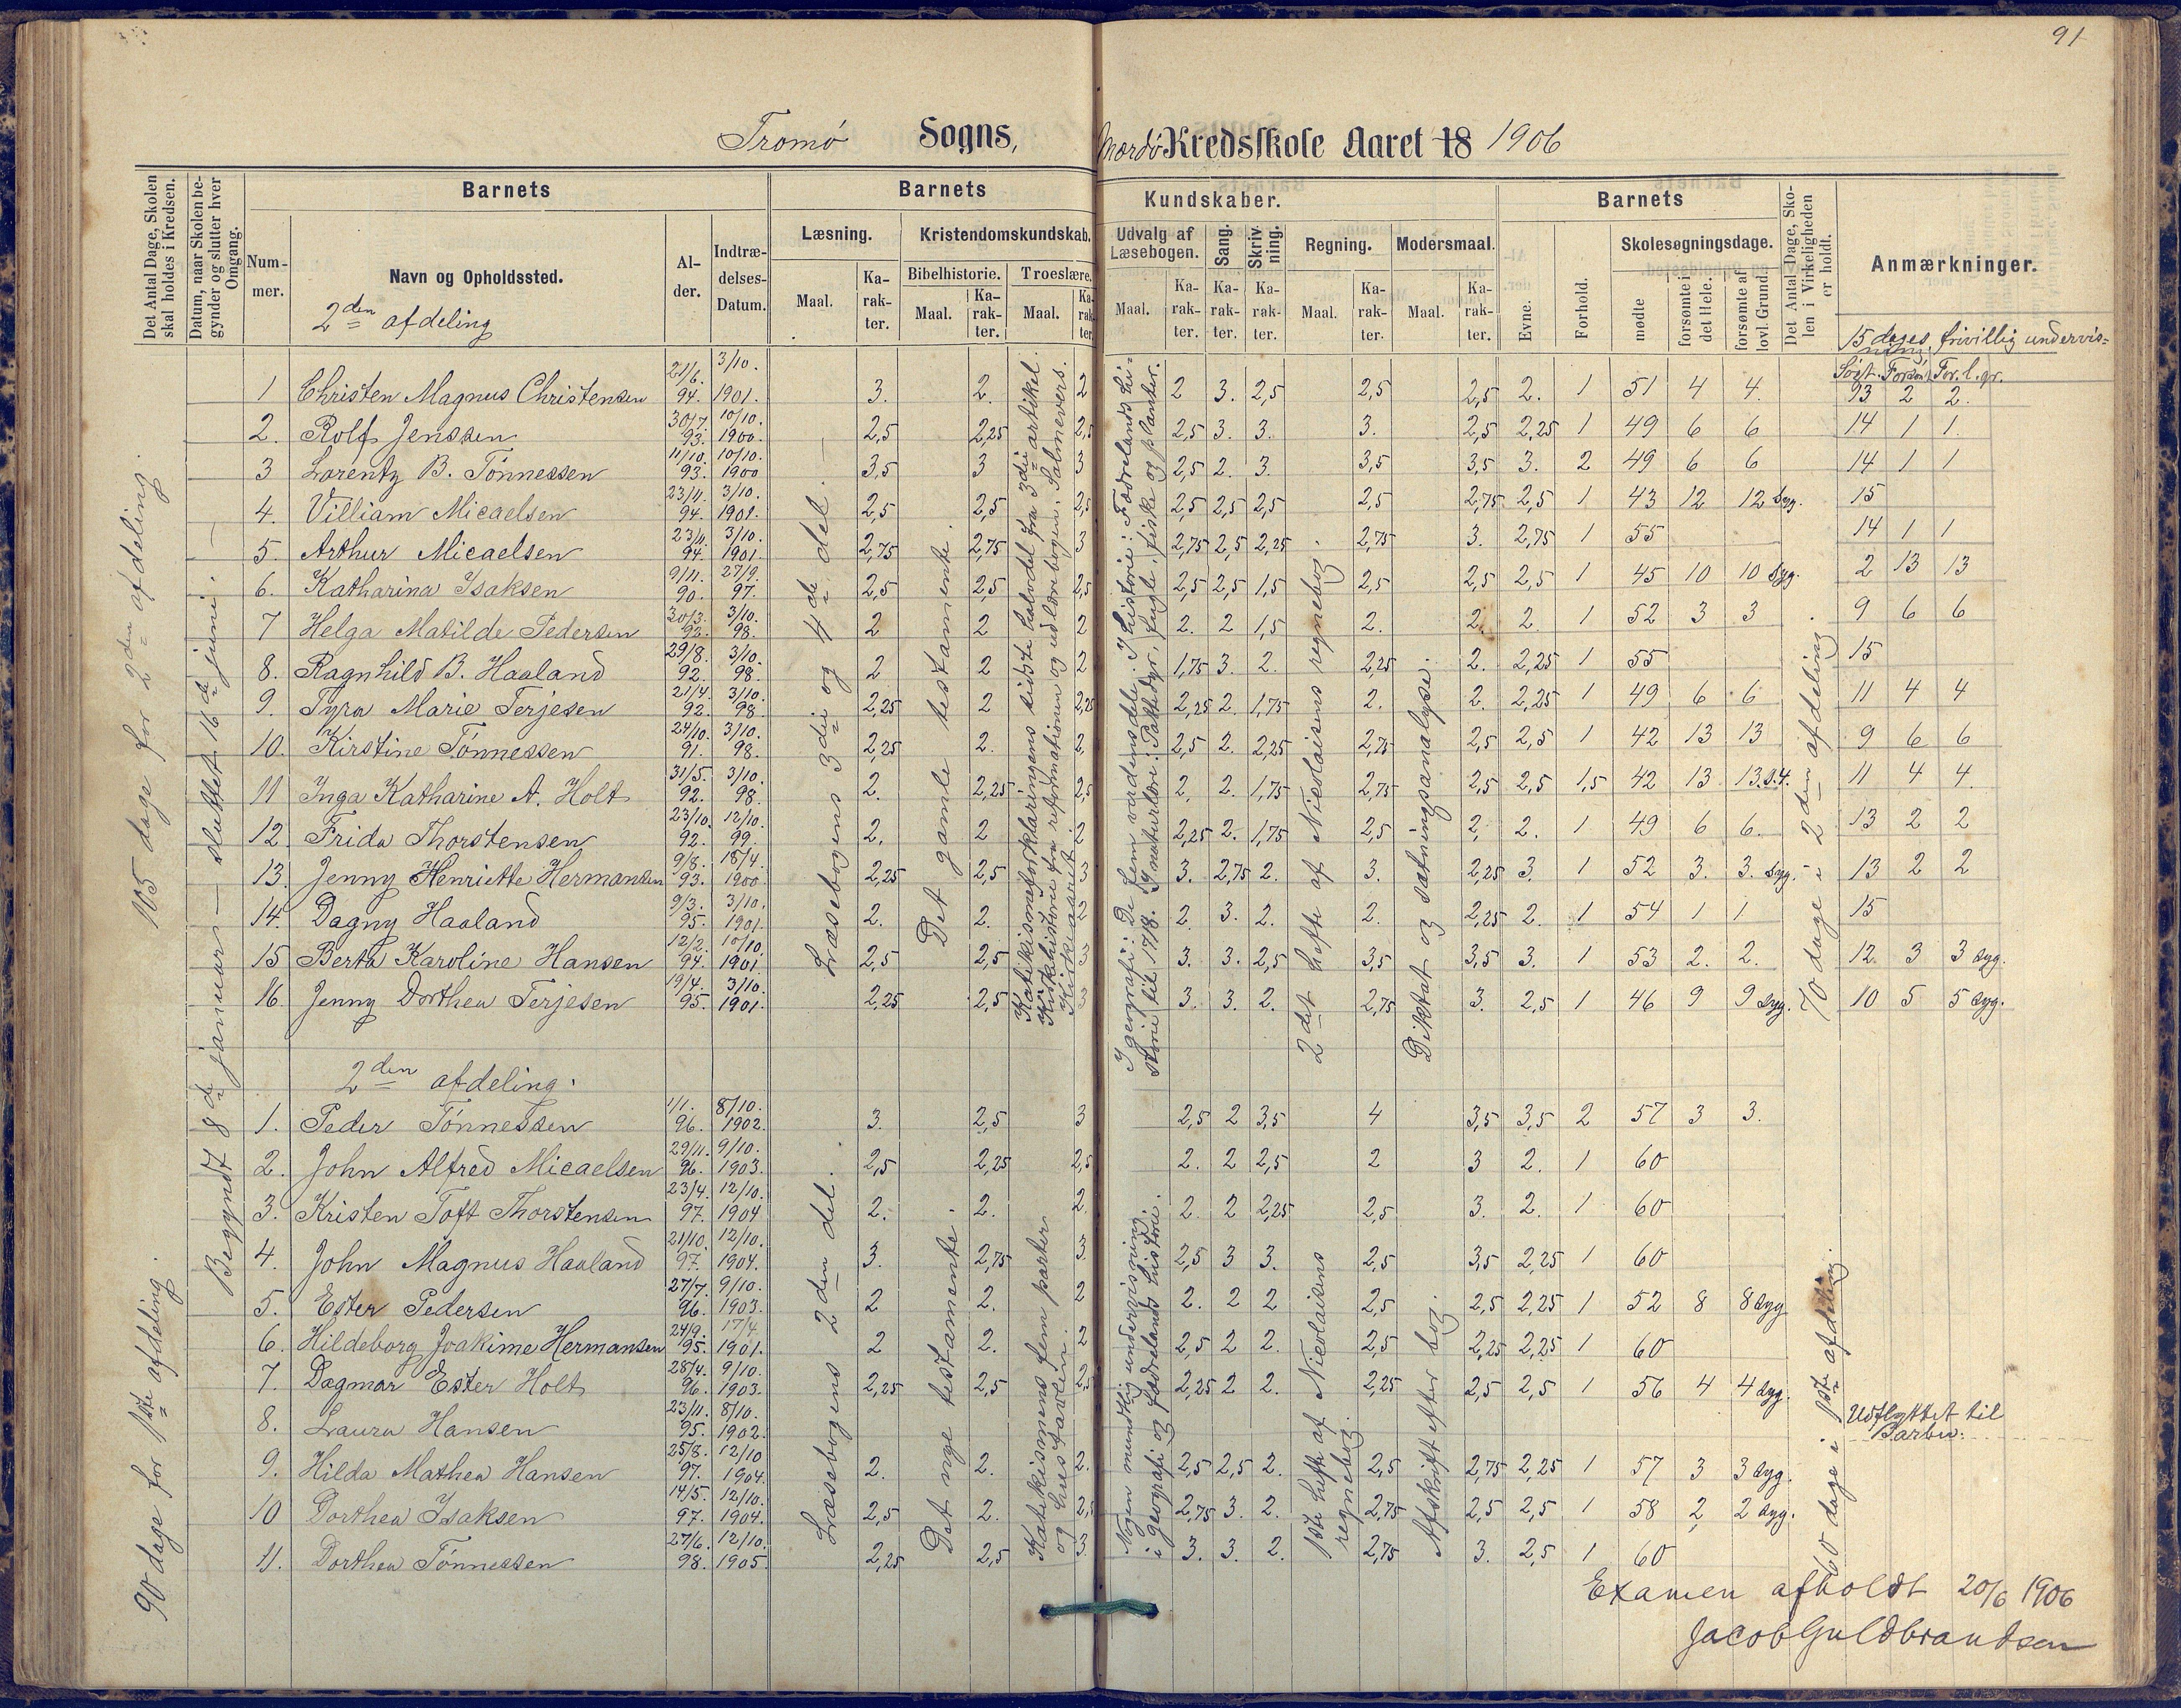 91
Tromø Sogns, Mærdø Kredsskole Aaret 18 1906
Det Antal Dage, Skolen skal holdes i Kredsen.
Datum, naar Skolen begynder og slutter hver Omgang.
Barnets
Barnets
Kundskaber.
Barnets
Det Antal Dage, Skolen i Virkeligheden er holdt.
Anmærkninger.
Nummer.
Navn og Opholdssted.
Alder.
Indtrædelses-Datum.
Læsning.
Kristendomskundskab.
Udvalg af Læsebogen.
Sang.
Skrivning.
Regning.
Modersmaal.
Evne.
Forhold.
Skolesøgningsdage.
Bibelhistorie.
Troeslære.
Maal. Karakter. Maal. Karakter. Maal. Karakter.
Maal. Karakter. Karakter. Karakter. Maal. Karakter. Maal. Karakter.
mødte
forsømte i det Hele.
forsømte af lovl. Grund.
2den afdeling
15 dages frivillig undervisning
Søgt. Forsøm. For. l. gr.
1 Christen Magnus Christensen 21/6. 94. 3/10. 1901. 3. 2. 2 2 3. 2,5 2,5 2,5 2. 1 51 4 4. 13 2 2.
2. Rolf Jenssen 30/7. 93. 10/10. 1900. 2,5 2,25 2,5 2,5 3. 3. 3. 2,5 2,25 1 49 6 6 14 1 1.
3 Lorentz B. Tønnessen 11/10. 93. 10/10. 1900 3,5 3 3 2,5 2. 3. 3,5 3,5 3. 2 49 6 6 14 1 1
4. Villiam Micaelsen 23/11. 94. 3/10. 1901. 2,5 2,5 2,5 2,5 2,5 2,5 2,5 2,75 2,5 1 43 12 12 syg. 15
5. Arthur Micaelsen 23/11. 94. 3/10. 1901. 2,75 2,75 3 2,75 2,5 2,25 2,75 3. 2,75 1 55 14 1 1
6. Katharina Isaksen 9/11. 90. 27/9. 97. 2,5 2,5 2,5 2,5 2,5 1,5 2,5 2,5 2,5 1 45 10 10 syg. 2 13 13
7 Helga Matilde Pedersen 30/3. 92. 3/10. 98. 2 2 2 2. 2 1,5 2. 2. 2. 1 52 3 3 9 6 6
8. Ragnhild B. Haaland 29/8. 92. 3/10. 98. 2 2 2 1,75 3. 2. 2,25 2. 2,25 1 55 15
9. Tyra Marie Terjesen 21/4. 92. 3/10. 98. 2,25 2 2,25 2,25 2. 1,75 2. 2. 2,25 1 49 6 6 11 4 4
10. Kirstine Tønnessen 24/10. 91. 3/10. 98. 2,25 2. 2, 2,5 2. 2,25 2,75 2,5 2,5 1 42 13 13 9 6 6
11 Inga Katharine A. Holt 31/5. 92. 3/10. 98. 2. 2,25 2,5 2, 2. 1,75 2,75 2,5 2,5 1,5 42 13 13. 11 4 4.
12. Frida Thorstensen 23/10. 92. 12/10. 99. 2. 2 2 2,25 2. 1,75 2,5 2, 2. 1 49 6 6. 13 2 2
13. Jenny Henriette Hermansen 9/8. 93. 18/4. 1900 2,25 2,5 3 3. 2,75 2. 3. 2,25 3. 1 52 3. 3. syg. 13 2 2
14. Dagny Haaland 9/3. 95. 3/10. 1901. 2. 2. 2 2. 3. 2. 2. 2,25 2. 1 54 1 1 15
15 Berta Karoline Hansen 12/2. 94. 10/10. 1901. 2,5 2,5 3 3. 3. 2,5 3,5 3,5 3. 1 53 2. 2. 12. 3 3 syg.
16. Jenny Dorthea Terjesen 19/4. 95. 3/10. 1901. 2,25 2,5 3 3. 3. 2. 2,75 3. 2,5 1 46 9 9 syg. 10 5 5 syg.
105 dage for 2den afdeling.
Begyndt 8de januar — sluttet 16de juni. —
Læsebogens 3die og 4de del. —
Det gamle testamente.
Katikismeforklaringens sidste halvdel fra 3die artikel.
Kirkehistorie fra reformationen og ud lærebogen. Salmevers.
Kirkeaaret
I geografi: De fem verdensdele. I historie: Fædrelands historie til 1718. I naturlære: Pattedyr, fugle, fiske og planter.
2det hefte af Nicolaisens regnebog.
Diktat og sætningsanalyse.
70 dage i 2den afdeling
2den afdeling.
1. Peder Tønnessen 1/1. 96. 8/10. 1902. 3. 2,5 3 2,5 2 3,5 4 3,5 3,5 2 57 3 3.
2. John Alfred Micaelsen 29/11. 96. 9/10. 1903. 2,5 2,25 2,5 2. 2 2,5 2 3 2. 1 60
3. Kristen Toft Thorstensen 23/4. 97. 12/10. 1904 2. 2. 2. 2. 2 2,25 2,5 3. 2. 1 60
4. John Magnus Haaland 21/10. 97. 12/10. 1904. 3. 2,75 3 2,5 3 3. 2,5 3,5 2,25 1 60
5. Ester Pedersen 27/7. 96. 9/10. 1903. 2 2. 2 2. 2 2 2,5 2,5 2,25 1 52 8 8 syg
6. Hildeborg Joakime Hermansen 24/9. 95. 17/4. 1901. 2 2. 2,5 2 2. 2,5 2,25 2,25 1 60
7. Dagmar Ester Holt 28/4. 96. 9/10. 1903. 2,25 2,5 2,5 2,25 2 2. 2,25 2,5 2,5 1 56 4 4 syg.
8. Laura Hansen 23/11. 95. 8/10. 1902. Udflyttet til Barbu.
9. Hilda Mathea Hansen 25/8. 97. 12/10 1904. 2. 2. 2. 2,5 2,5 2. 2,5 2,75 2,25 1 57 3 3 syg.
10 Dorthea Isaksen 14/5. 97. 12/10. 1904. 2,5 2. 2,5 2,75 3. 2. 2,75 2,5 2,5 1 58 2 2 syg.
11. Dorthea Tønnessen 27/6. 98. 12/10. 1905. 2,25 2,5 3 3. 3. 2. 2,75 3. 2,5 1 60
90 dage for 1ste afdeling.
Læsebogens 2den del.
Det nye testamente.
Katekismens fem parter og hustavlen.
Nogen mundtlig undervisning i geografi og fædrelands historie.
1ste hefte af Nicolaisens regnebog.
Afskrift efter bog.
60 dage i 1ste afdeling.
Examen afholdt 20/6 1906
Jacob Guldbrandsen